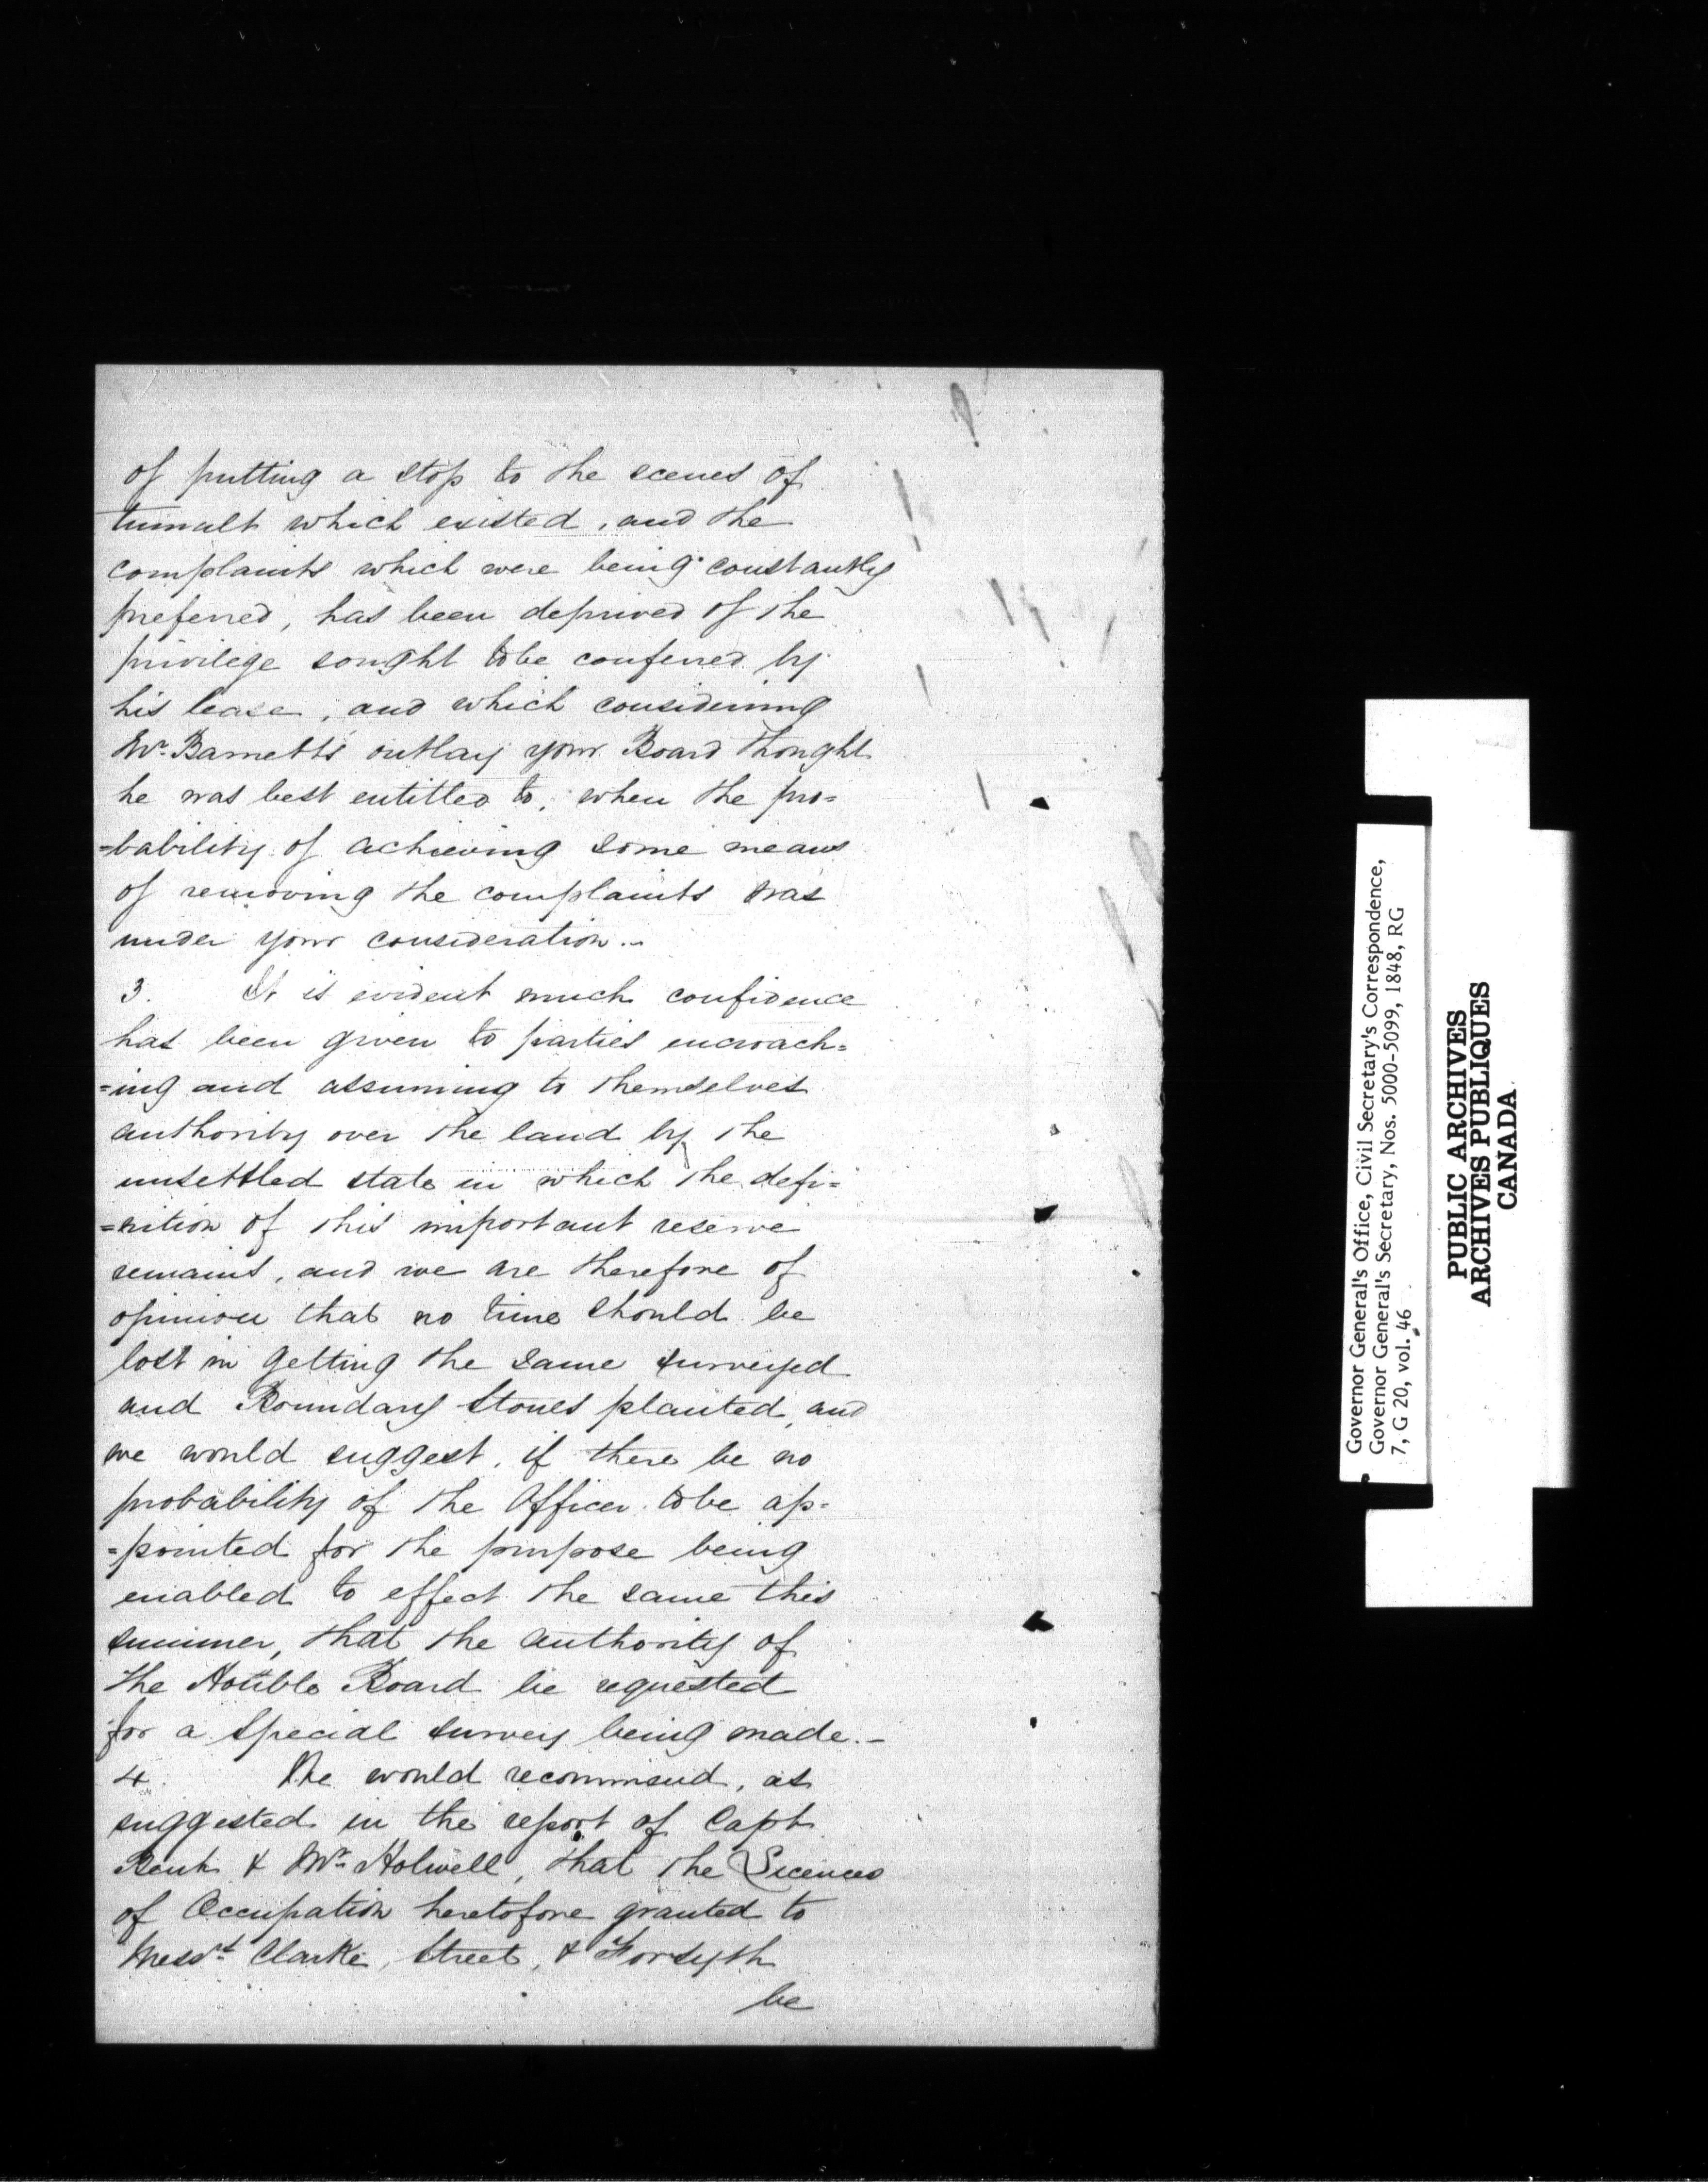 of putting a stop to the scenes of
tumult which existed, and the
complaints which were being constantly
preferred, has been deprived of the
privilege sought to be conferred by
his lease, and which considering
Mr. Barnetts outlay your Board thought
he was best entitled to, when the pro=
=bability of achieving some means
of removing the complaints was
under your consideration.-
3. It is evident much confidence
has been given to parties encroach=
=ing and assuming to themselves
authority over the land by the
unsettled state in which the defi=
=nition of this important reserve
remains, and we are therefore of
opinion that no time should be
lost in getting the same surveyed
and Boundary Stones planted, and
we would suggest, if there be no
probability of the Officer to be ap=
=pointed for the purpose being
enabled to effect the same this
summer, that the authority of
the Honble Board be requested
for a special survey being made.-
4. We would recommend, as
suggested in the report of Capt
& Mr. Holwell, that the Licences
of Occupation heretofore granted to
Messrs. Clarke, Street, & Forsyth
be
Governor General's Office, Civil Secretary's Correspondence,
Governor General's Secretary, Nos. 5000-5099, 1848, RG
7, G 20, vol. 46
PUBLIC ARCHIVES
ARCHIVES PUBLIQUES
CANADA